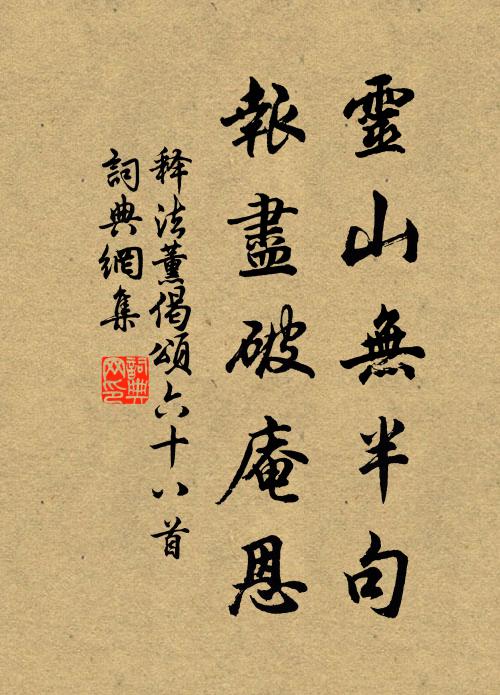 靈山無半句
報盡破庵恩
释法薰偈頌六十八首
詞典網集
詞典
网印